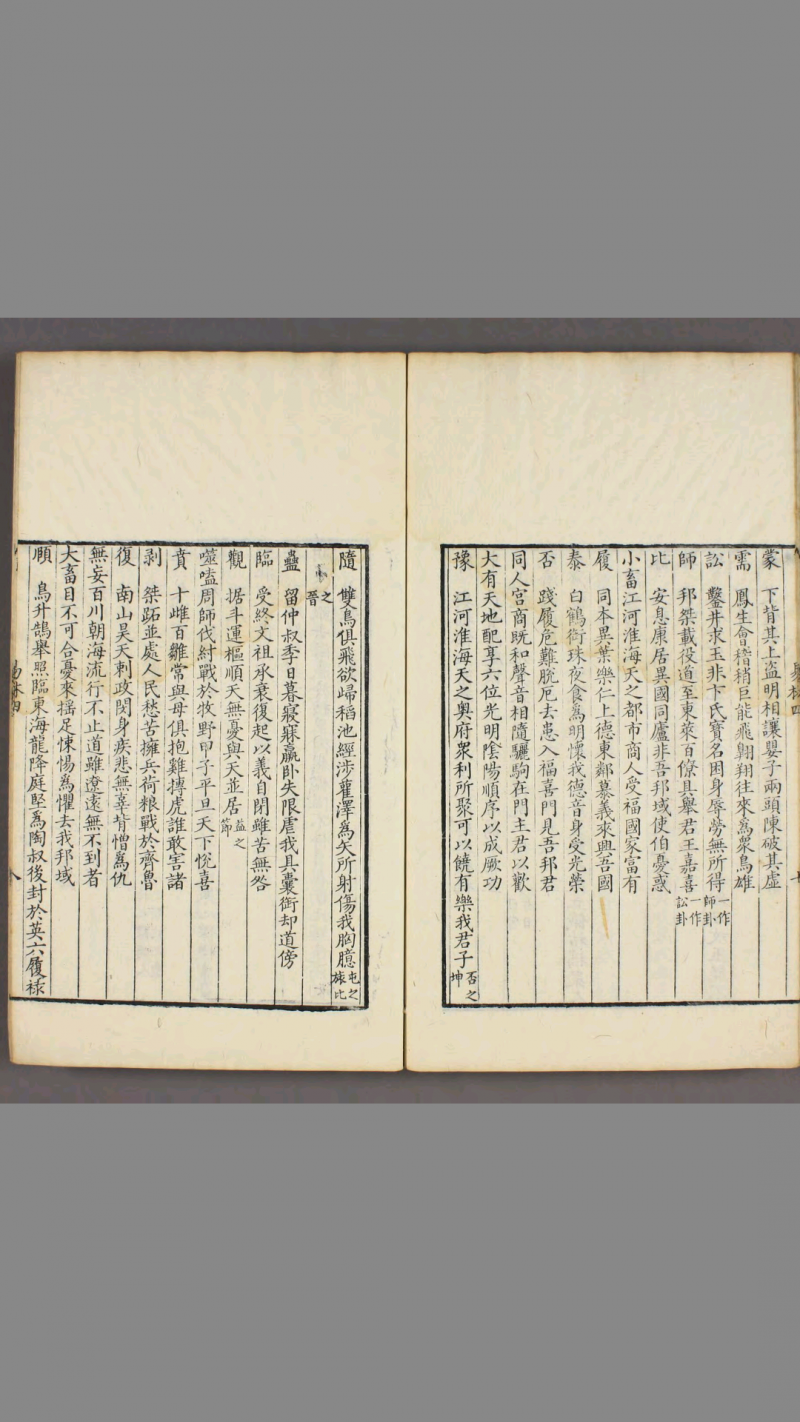 蒙　下背其上盜明相讓嬰子兩頭陳破其虛
需　鳳生會稽稍巨能飛翺翔往來為衆鳥雄
訟　鑿井求玉非卞氏寶名困身辱勞無所得一作師卦
師　邦桀載役道至東萊百僚具舉君王嘉喜一作訟卦
比　安息康居異國同廬非吾邦域使伯憂惑
小畜江河淮海天之都市商人受福國家富有
履　同本異葉樂仁上德東鄰慕義來興吾國
泰　白鶴銜珠夜食為明懷我德音身受光榮
否　踐履危難脫厄去患入福喜門見吾邦君
同人宮商既和聲音相隨驪駒在門主君以歡
大有天地配享六位光明陰陽順序以成厥功
豫　江河淮海天之奧府衆利所聚可以饒有樂我君子否之坤
隨　雙鳥俱飛欲歸稻池經涉雚澤為矢所射傷我胸臆屯之旅比
之晉
蠱　留仲叔季日暮寢寐羸卧失限虐我具囊衒却道傍
臨　受終文祖承衰復起以義自閉雖苦無咎
觀　据斗運樞順天無憂與天並居益之節
噬嗑周師伐紂戰於牧野甲子平旦天下悅喜
賁　十雌百雛常與母俱抱雞搏虎誰敢害諸
剥　桀跖並處人民愁苦擁兵荷粮戰於齊魯
復　南山昊天刺政閔身疾悲無辜背憎為仇
無妄百川朝海流行不止道雖遼遠無不到者
大畜目不可合憂來搔足悚惕為懼去我邦域
頤　鳥升鵠舉照臨東海龍降庭堅為陶叔後封於英六履祿
易林四
八